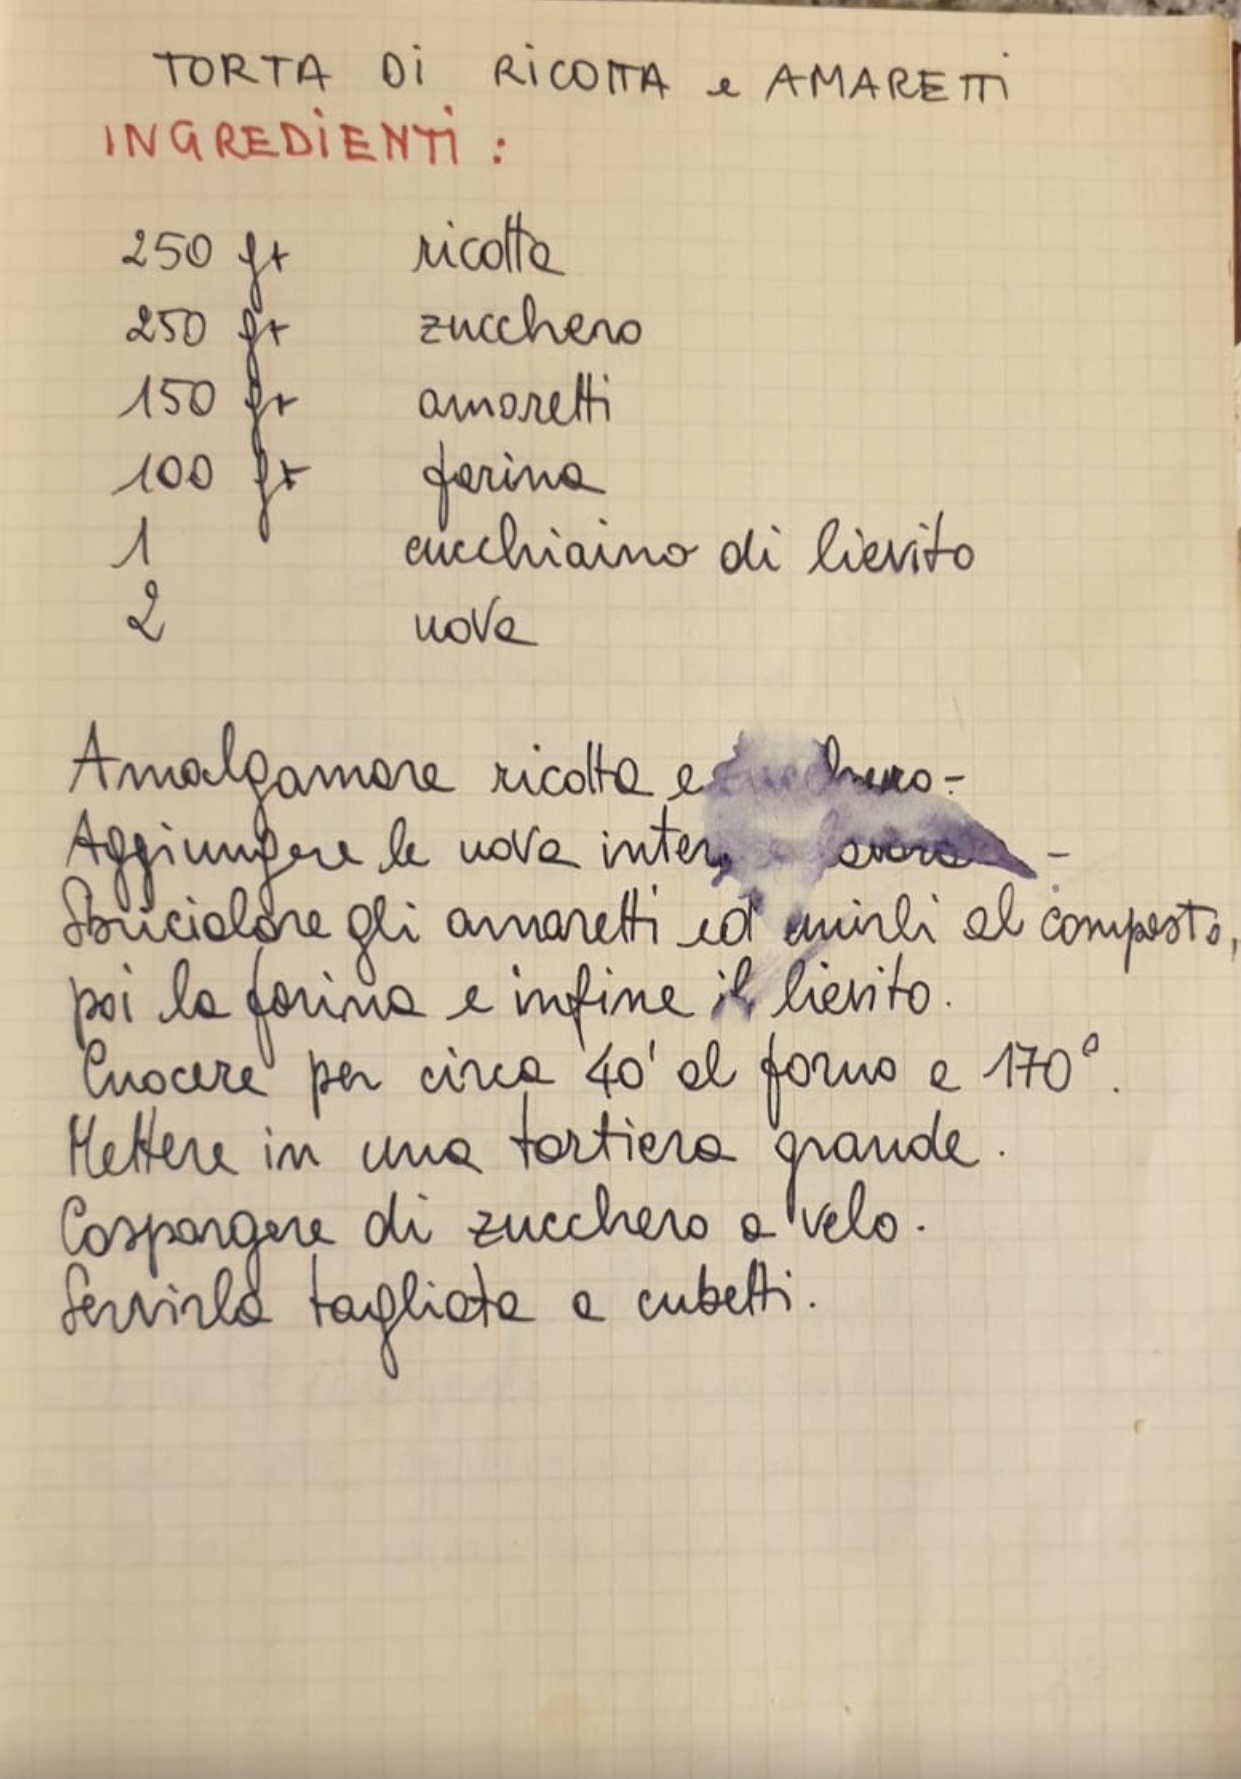 TORTA Di RiCOTTA e AMARETTi
INGREDiENTi:
250 gr ricotta
250 gr zucchero
150 gr amaretti
100 gr farina
1 cucchiaino di lievito
2 uova
Amalgamare ricotta e zucchero-
Aggiungere le uova -
Sbriciolare gli amaretti ed unirli al composto,
poi la farina e infine il lievito.
Cuocere per circa 40' al forno a 170°.
Mettere in una tortiera grande.
Cospargere di zucchero a velo.
Servirla tagliata a cubetti.